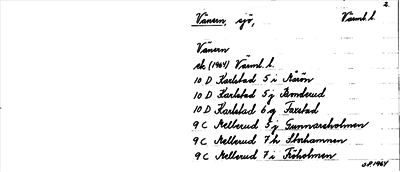 2.
Vänern, sjö, Värml. l.
Vänern
ek (1964) Värml. l.
10 D Karlstad 5 i Arön
10 D Karlstad 5 j Bomderud
10 D Karlstad 6 g Taxstad
9 C Mellerud 5 j Gunnarsholmen
9 C Mellerud 7 h Storhamnen
9 C Mellerud 7 i Fröholmen
SP. 1964